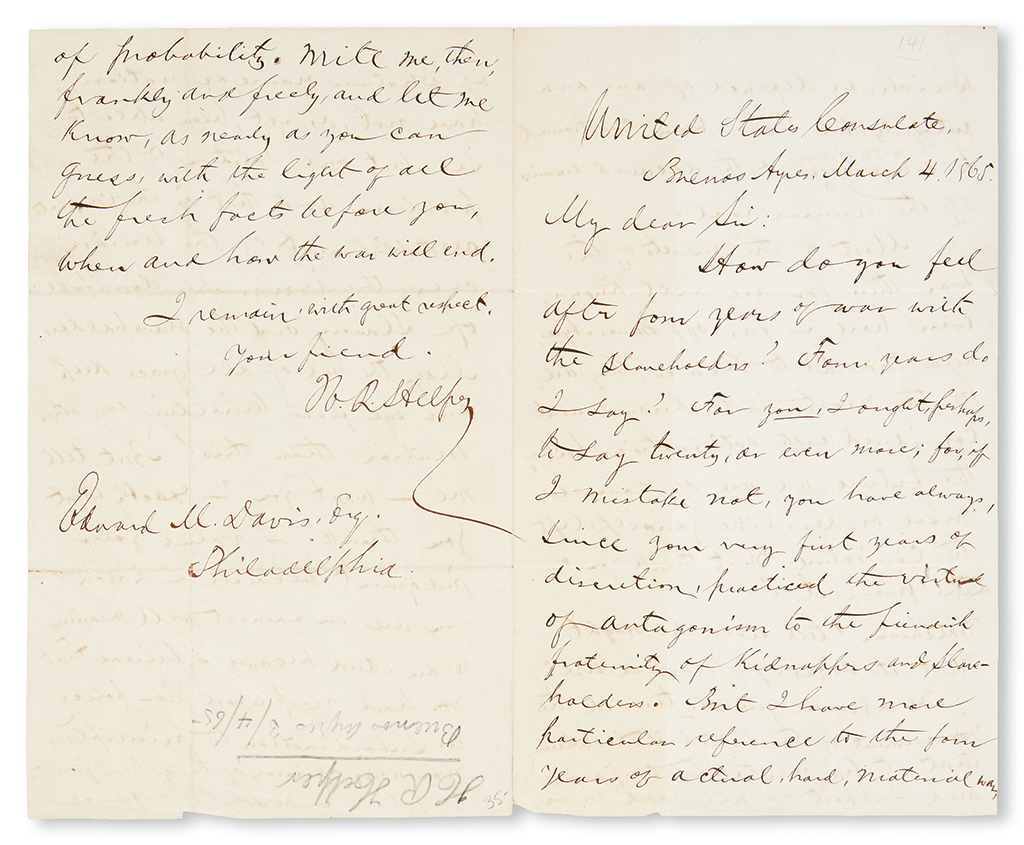 141
United States Consulate,
Buenos Ayres, March 4, 1865.
My dear Sir:
How do you feel
after four years of war with
the slaveholders? Four years do
I say? For you, I ought, perhaps,
to say twenty, or even more; for, if
I mistake not, you have always,
since your very first years of
discretion, practiced the virtue
of antagonism to the fiendish
fraternity of Kidnappers and Slave-
holders. But I have more
particular reference to the four
years of actual, hard, material war,
of probability. Write me, then,
frankly and freely, and let me
know, as nearly as you can
guess, with the light of all
the fresh facts before you,
when and how the war will end.
I remain, with great respect,
Your friend.
H. R. Helper
Edward M. Davis, Esq.
Philadelphia.
H R Helper
Buenos Ayres 3/4/65